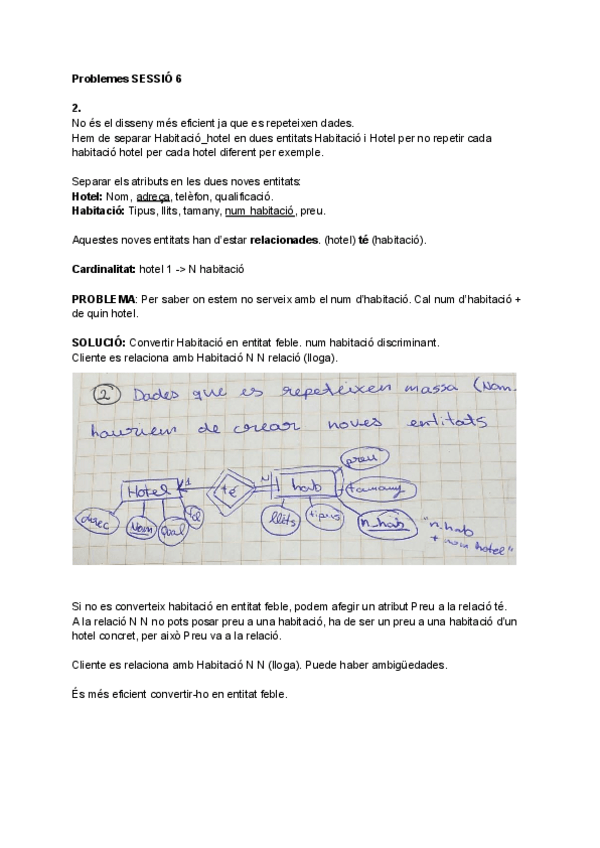 Problemes SESSIÓ 6
2.
No és el disseny més eficient ja que es repeteixen dades.
Hem de separar Habitació_hotel en dues entitats Habitació i Hotel per no repetir cada
habitació hotel per cada hotel diferent per exemple.
Separar els atributs en les dues noves entitats:
Hotel: Nom, adreça, telèfon, qualificació.
Habitació: Tipus, llits, tamany, num habitació, preu.
Aquestes noves entitats han d'estar relacionades. (hotel) té (habitació).
Cardinalitat: hotel 1 -> N habitació
PROBLEMA: Per saber on estem no serveix amb el num d'habitació. Cal num d'habitació +
de quin hotel.
SOLUCIÓ: Convertir Habitació en entitat feble. num habitació discriminant.
Cliente es relaciona amb Habitació N N relació (lloga).
2 Dades que es repeteixen massa (Nom.
hauríem de crear noves entitats
preu
Hotel 1 té N hab tamany
adrec Nom Qual Tel llits tipus n_hab "n.hab
+ nom hotel"
Si no es converteix habitació en entitat feble, podem afegir un atribut Preu a la relació té.
A la relació N N no pots posar preu a una habitació, ha de ser un preu a una habitació d'un
hotel concret, per això Preu va a la relació.
Cliente es relaciona amb Habitació N N (lloga). Puede haber ambigüedades.
És més eficient convertir-ho en entitat feble.